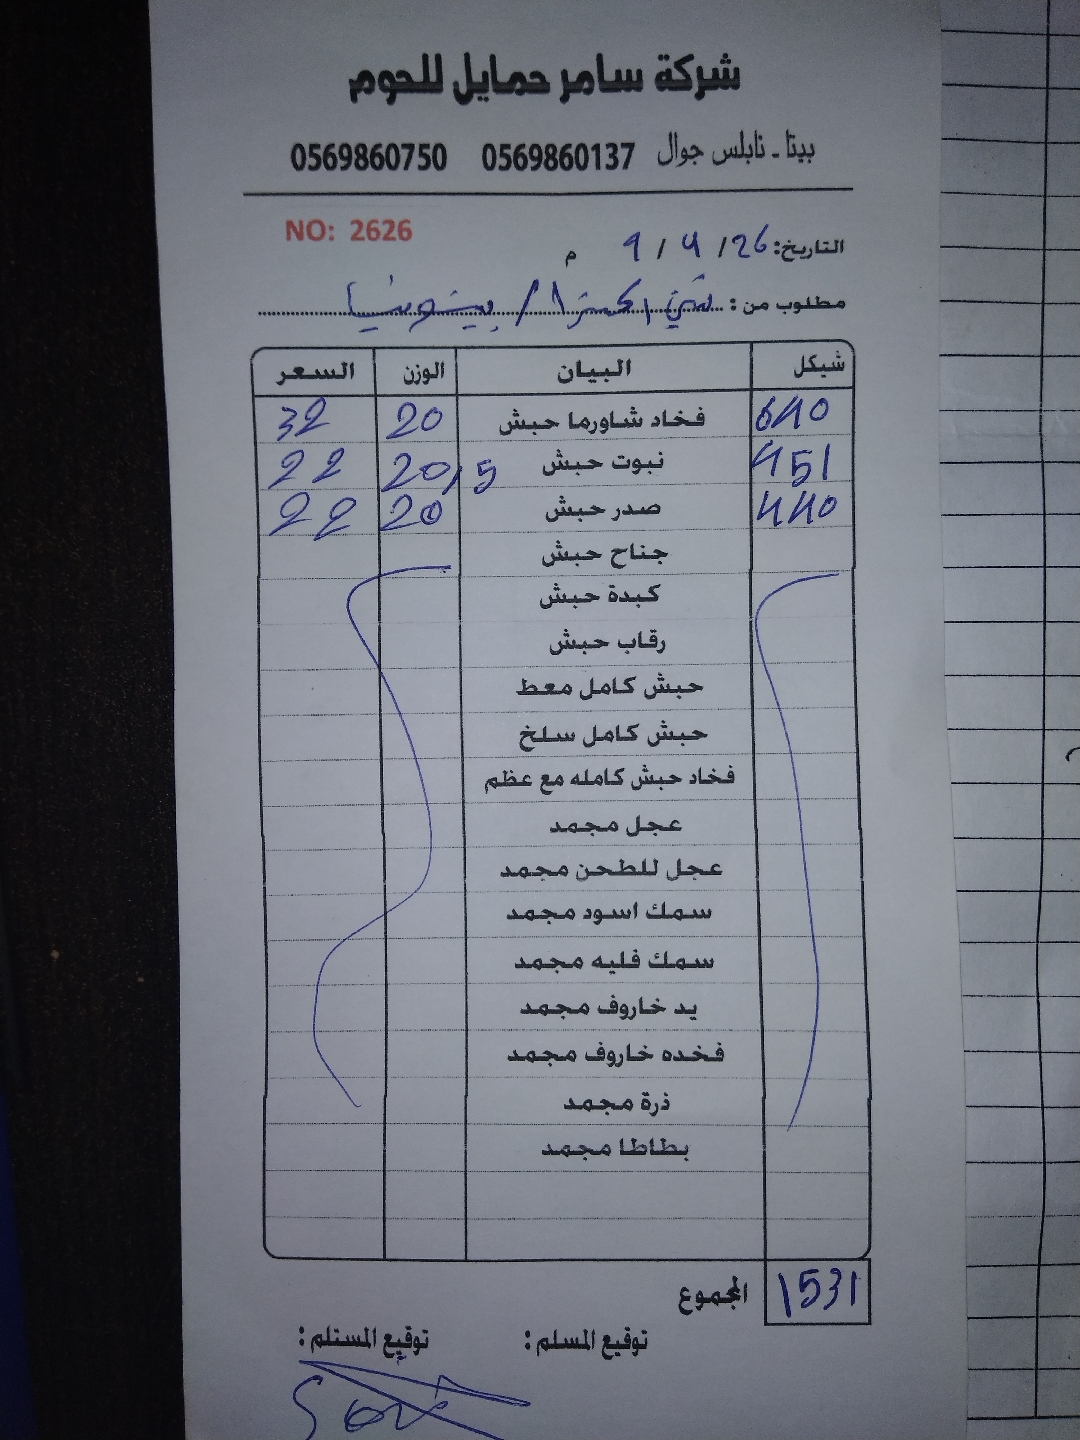 شركة سامر حمايل للحوم
بيتا - نابلس جوال 0569860137 0569860750
NO: 2626
التاريخ: 26 / 4 / 9 م
مطلوب من :
شيكل البيان الوزن السعر
640 فخاد شاورما حبش 20 32
451 نبوت حبش 20,5 22
440 صدر حبش 20 22
جناح حبش
كبدة حبش
رقاب حبش
حبش كامل معط
حبش كامل سلخ
فخاد حبش كامله مع عظم
عجل مجمد
عجل للطحن مجمد
سمك اسود مجمد
سمك فليه مجمد
يد خاروف مجمد
فخده خاروف مجمد
ذرة مجمد
بطاطا مجمد
المجموع 1531
توقيع المسلم : توقيع المستلم :